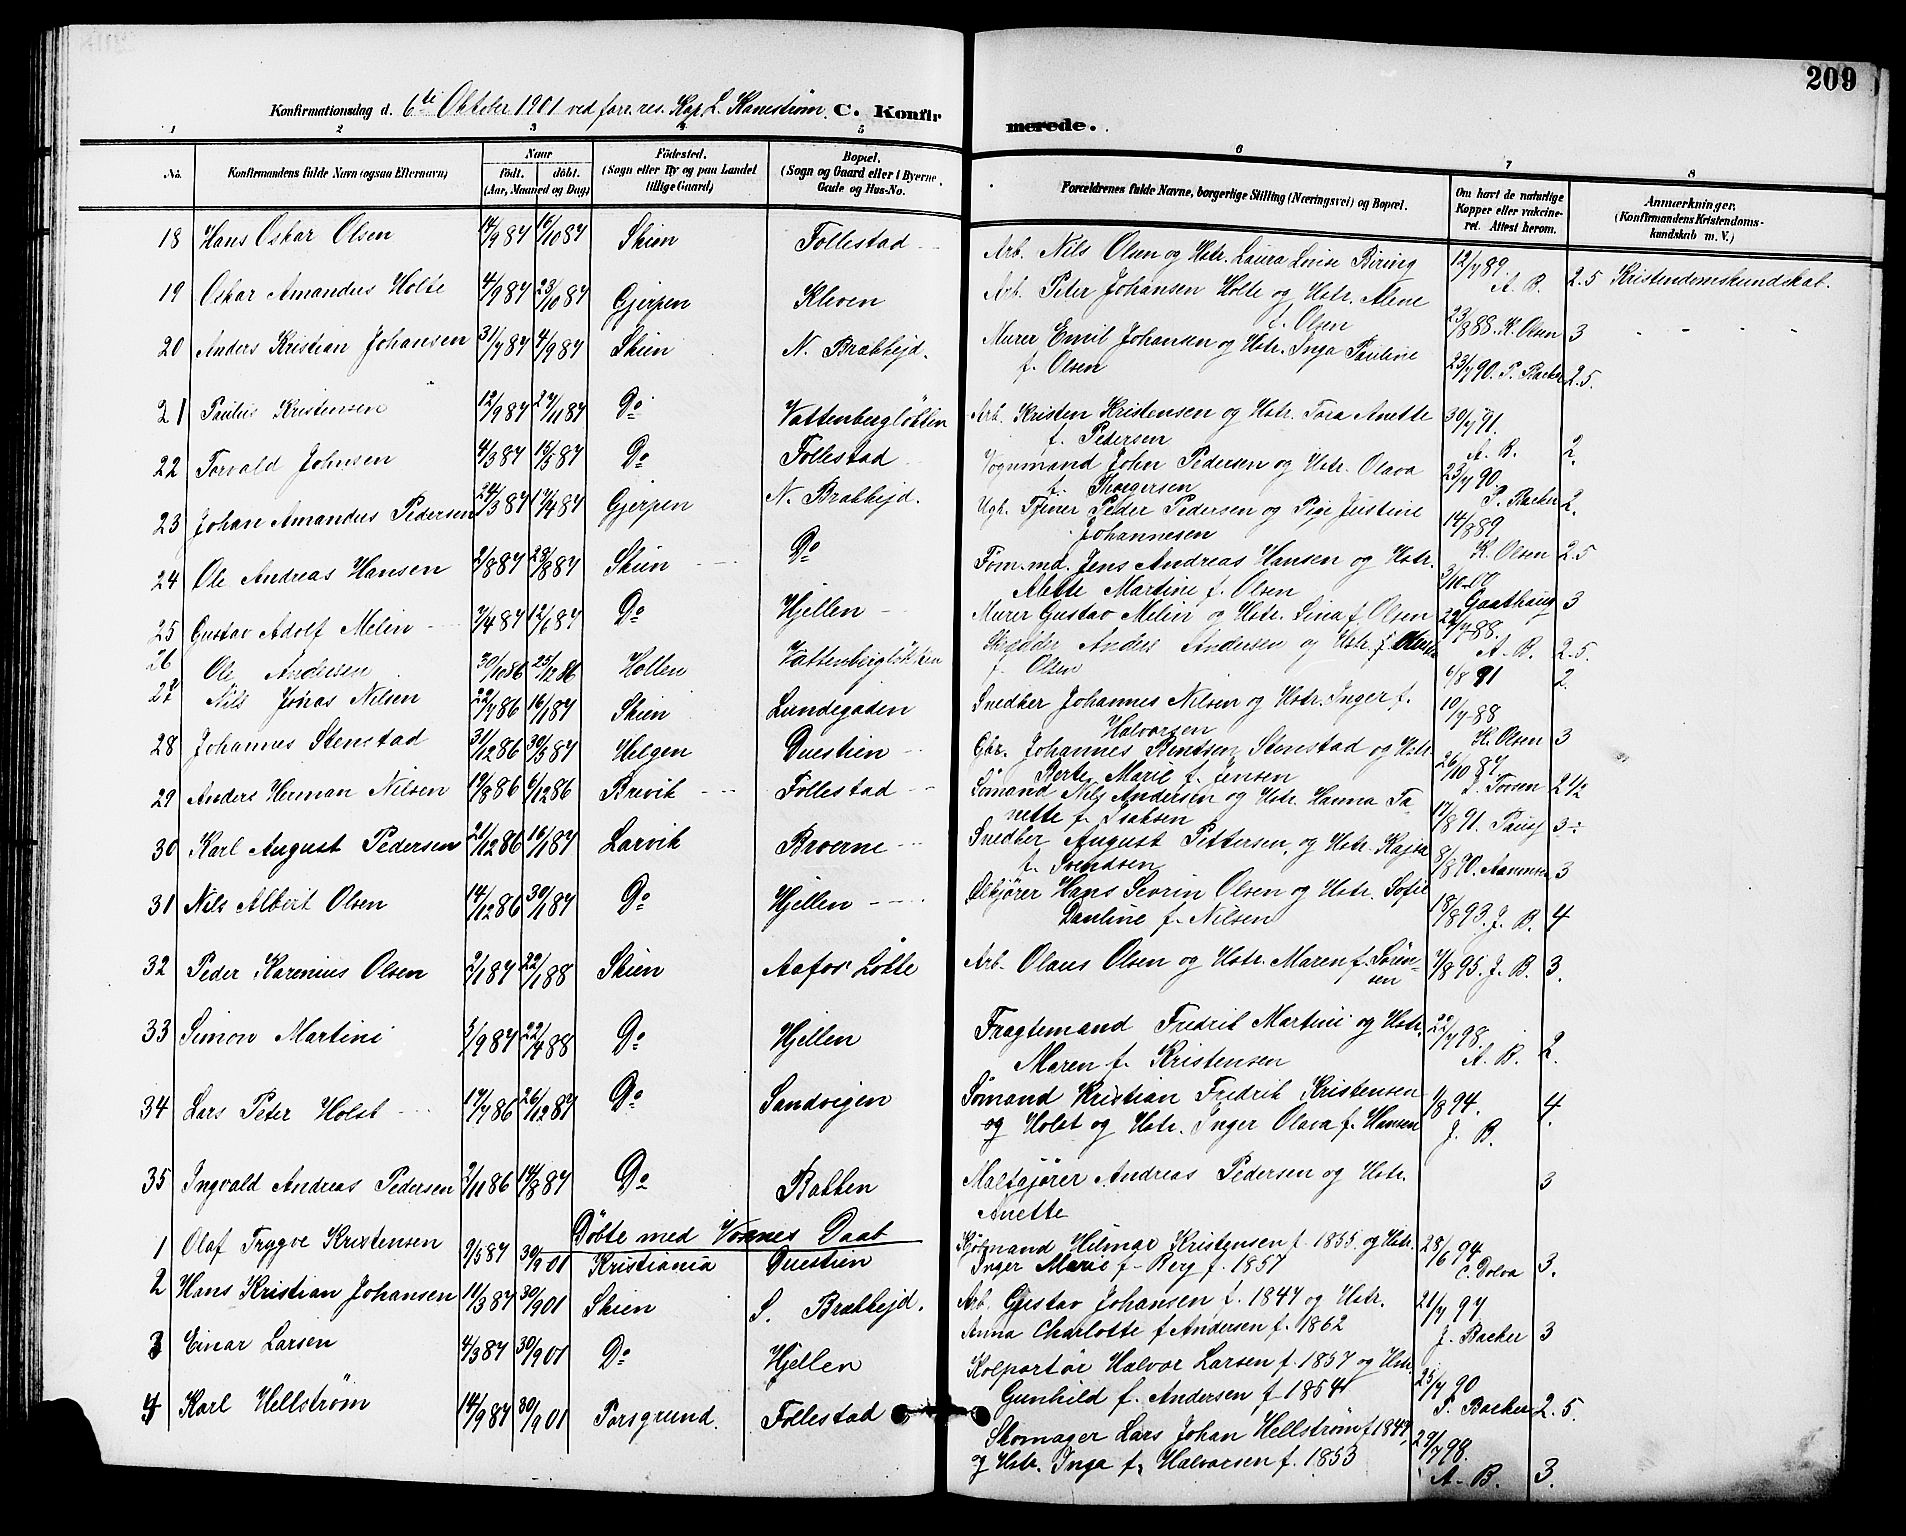 209
Konfirmationsdag d. 6te Oktober 1901 ved forr. res. Kap. L. Kanestrøm. C. Konfirmerede.
1 2 3 4 5 6 7 8
No. Konfirmandens fulde Navn (ogsaa Efternavn) Naar født. døbt. (Aar, Maaned og Dag) Fødested. (Sogn eller By og paa Landet tillige Gaard) Bopæl. (Sogn og Gaard eller i Byerne, Gade og Hus-No. Forældrenes fulde Navne, borgerlige Stilling (Næringsvei) og Bopæl. Om havt de naturlige Kopper eller vakcineret. Attest herom. Anmærkninger. (Konfirmandens Kristendomskundskab m. V.)
18 Hans Oskar Olsen 14/9 87 16/10 87 Skien Follestad Arb. Nils Olsen og Hstr. Laura Lovise Biring 12/7 89. A. B. 2.5 Kristendomskundskab.
19 Oskar Amandus Holte 4/9 87 23/10 87 Gjerpen Kleven Arb. Peter Johansen Holte og Hstr. Alene f. Olsen 23/8 88. K. Olsen 3
20 Anders Kristian Johansen 31/7 87 4/9 87 Skien N. Brækkejd. Murer Emil Johansen og Hstr. Inga Pauline f. Olsen 23/7 90. P. Backer 2.5.
21 Paulus Kristensen 12/9 87 27/11 87 Do Vattenbergløkken Arb. Kristen Kristensen og Hstr. Tora Anette f. Pedersen 30/7 91. A. B. 2.
22 Torvald Johnsen 4/3 87 15/5 87 Do Follestad Vognmand John Pedersen og Hstr. Olava f. Thorgersen 23/7 90. P. Backer 2.
23 Johan Amandus Pedersen 24/3 87 17/4 87 Gjerpen N. Brækkejd. Ugh. Tjener Peder Pedersen og Pige Justine Johannesen 14/8 89 K. Olsen 2.5
24 Ole Andreas Hansen 2/8 87 28/8 87 Skien Do Tøm.md. Jens Andreas Hansen og Hstr. Alette Martine f. Olsen 3/10 Gaathaug 3
25 Gustav Adolf Melin 7/4 87 12/6 87 Do Hjellen Murer Gustav Melin og Hstr. Lina f. Olsen 29/7 88. A. B. 2.5.
26 Ole Andersen 30/10 86 25/12 86 Hollen Vattenbergløkken Skrædder Anders Andersen og Hstr. f. Olsen 6/8 91 2.
27 Nils Jonas Nilsen 22/7 86 16/1 87 Skien Lundegaden Snedker Johannes Nilsen og Hstr. Inger f. Halvorsen 10/7 88 K. Olsen 3
28 Johannes Stenstad 31/12 86 30/3 87 Helgen Duestien Gbr. Johannes Bentsen Stenstad og Hstr. Berte Marie f. Jensen 26/10 87 J. Torsen 2 1/2
29 Anders Herman Nilsen 19/8 86 6/12 86 Brevik Follestad Sømand Nils Andersen og Hstr. Hanna Tanette f. Isaksen 17/8 91. Paus 3÷
30 Karl August Pedersen 21/12 86 16/1 87 Larvik Broerne Snedker August Pettersen og Hstr. Kajsa f. Svendsen 8/8 90. Aamensen 3
31 Nils Albert Olsen 14/12 86 30/1 87 Do Hjellen Ølkjører Hans Severin Olsen og Hstr. Sofie Pauline f. Nilsen 18/8 93. J. B. 4
32 Peder Karenius Olsen 2/1 87 22/1 88 Skien Aafos Løkke Arb. Olaus Olsen og Hstr. Maren f. Sørensen 7/8 95. J. B. 3.
33 Simon Martini 5/9 87 22/4 88 Do Hjellen Fragtemand Fredrik Martini og Hstr. Maren f. Kristensen 22/7 98. A. B. 2.
34 Lars Peter Holst 17/7 86 26/12 87 Do Sandvigen Sømand Kristian Fredrik Kristensen og Holst og Hstr. Inger Olava f. Hansen 1/8 94. J. B. 4.
35 Ingvald Andreas Pedersen 2/11 86 14/8 87 Do Bakken Maltgjører Andreas Pedersen og Hstr. Anette 3
Døbte med Voxnes Daab
1 Olaf Trygve Kristensen 9/5 87 30/9 01 Kristiania Duestien Kjøbmand Hilmar Kristensen f. 1855 og Hstr. Inger Marie f. Berg f. 1857 28/6 94 C. Dolva 3.
2 Hans Kristian Johansen 11/3 87 30/9 01 Skien S. Brækkejd. Arb. Gustav Johansen f. 1847 og Hstr. Anna Charlotte f. Andersen f. 1862 21/7 97 J. Backer 3
3 Einar Larsen 4/3 87 30/9 01 Do Hjellen Kolportør Halvor Larsen f. 1857 og Hstr. Gunhild f. Andersen f. 1854 25/7 90 P. Backer 2.5.
4 Karl Hellstrøm 14/9 87 30/9 01 Porsgrund. Follestad Skomager Lars Johan Hellstrøm f. 1847 og Hstr. Inga f. Halvorsen f. 1853 29/7 98. A. B. 3.